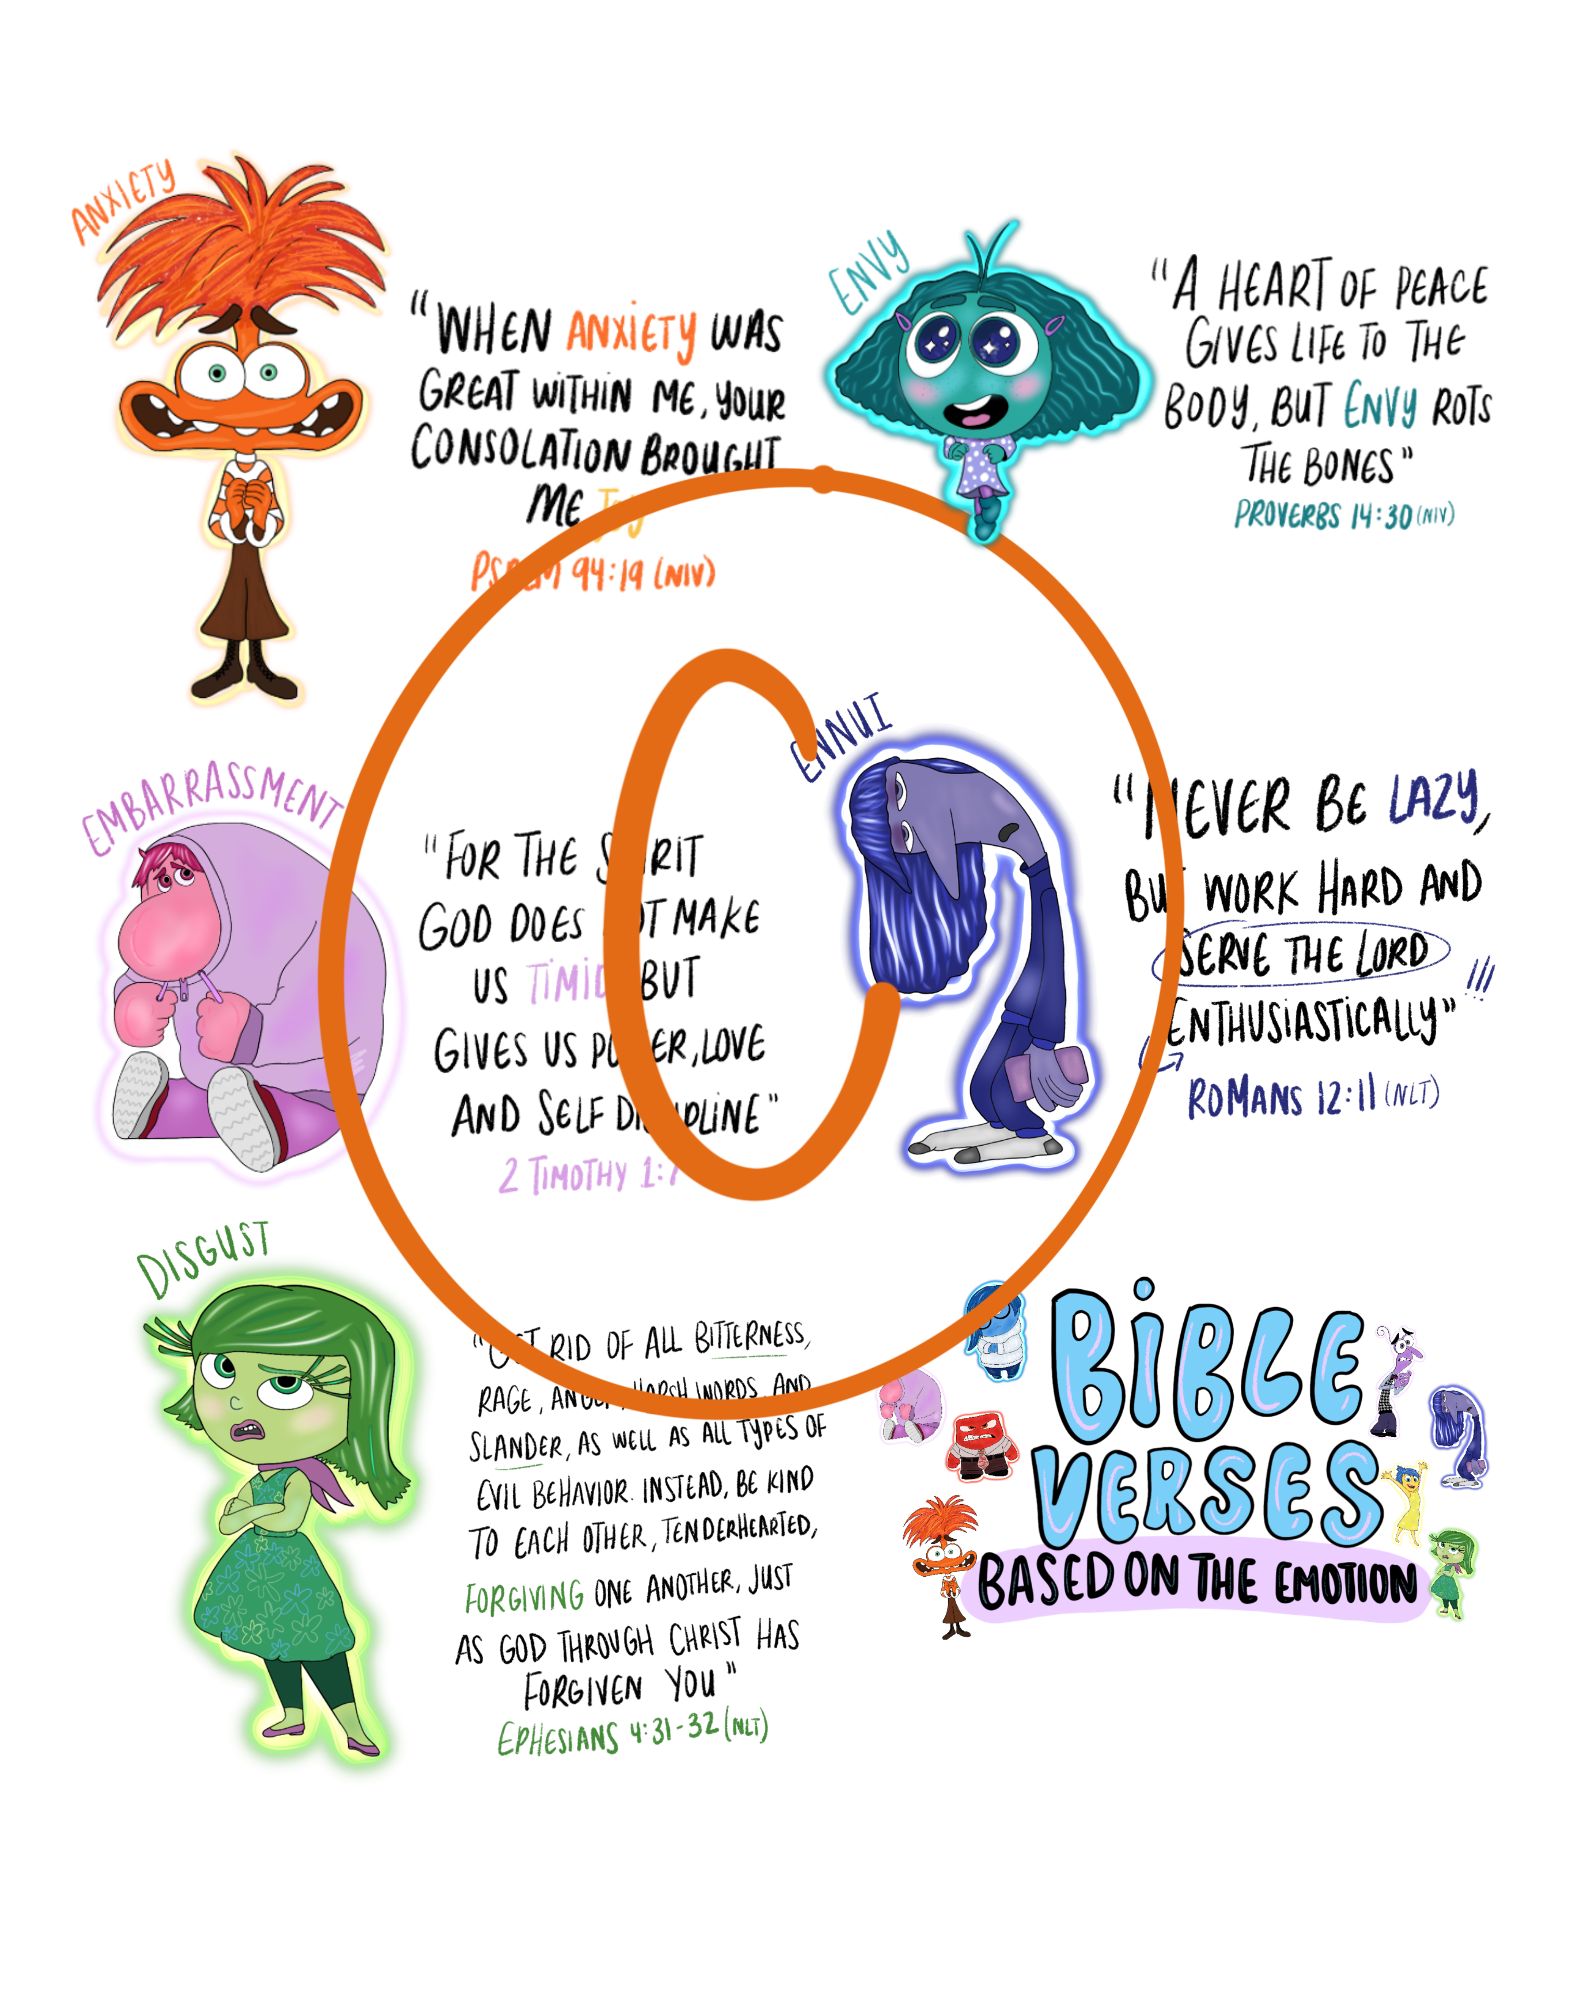 ANXIETY
"WHEN ANXIETY WAS
GREAT WITHIN ME, YOUR
CONSOLATION BROUGHT
ME Joy
PSALM 94:19 (NIV)
ENVY
"A HEART OF PEACE
GIVES LIFE TO THE
BODY, BUT ENVY ROTS
THE BONES"
PROVERBS 14:30 (NIV)
EMBARRASSMENT
"FOR THE SPIRIT
GOD DOES NOT MAKE
US TIMID BUT
GIVES US POWER, LOVE
AND SELF DISCIPLINE"
2 TIMOTHY 1:7
ENNUI
"NEVER BE LAZY,
BUT WORK HARD AND
SERVE THE LORD
ENTHUSIASTICALLY"
ROMANS 12:11 (NLT)
DISGUST
"GET RID OF ALL BITTERNESS,
RAGE, ANGER, HARSH WORDS, AND
SLANDER, AS WELL AS ALL TYPES OF
EVIL BEHAVIOR. INSTEAD, BE KIND
TO EACH OTHER, TENDERHEARTED,
FORGIVING ONE ANOTHER, JUST
AS GOD THROUGH CHRIST HAS
FORGIVEN YOU"
EPHESIANS 4:31-32 (NLT)
BIBLE
VERSES
BASED ON THE EMOTION